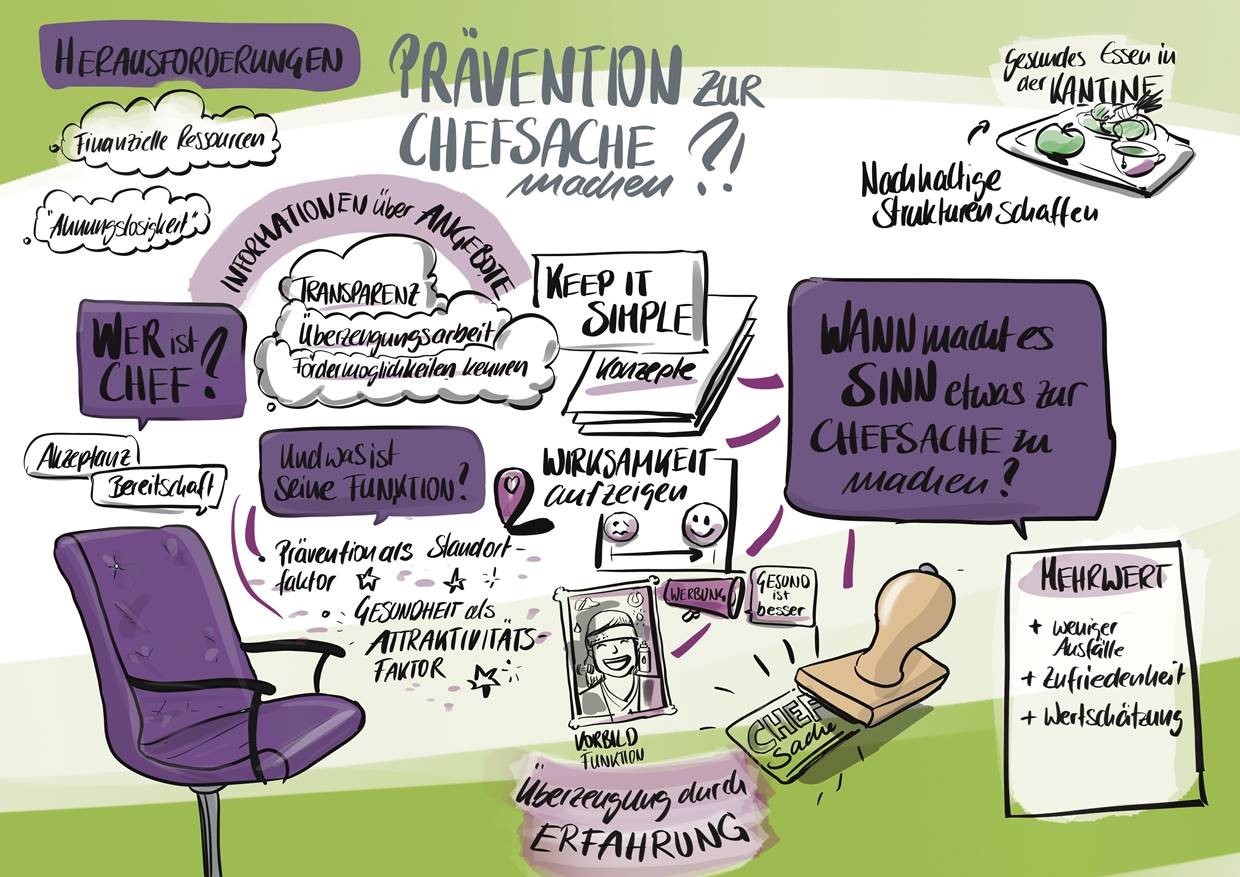 HERAUSFORDERUNGEN
Finanzielle Ressourcen
"Ahnungslosigkeit"
PRÄVENTION zur
CHEFSACHE
machen ?!
Gesundes Essen in
der KANTINE
Nachhaltige
Strukturen schaffen
INFORMATIONEN über ANGEBOTE
TRANSPARENZ
Überzeugungsarbeit
Fördermöglichkeiten kennen
WER ist
CHEF?
Akzeptanz
Bereitschaft
Und was ist
seine FUNKTION?
Prävention als Standort-
faktor
GESUNDHEIT als
ATTRAKTIVITÄTS-
FAKTOR
KEEP IT
SIMPLE
Konzepte
WIRKSAMKEIT
aufzeigen
WERBUNG
GESUND
ist
besser
VORBILD
FUNKTION
Überzeugung durch
ERFAHRUNG
WANN macht es
SINN etwas zur
CHEFSACHE zu
machen?
CHEF
Sache
MEHRWERT
+ weniger
Ausfälle
+ Zufriedenheit
+ Wertschätzung